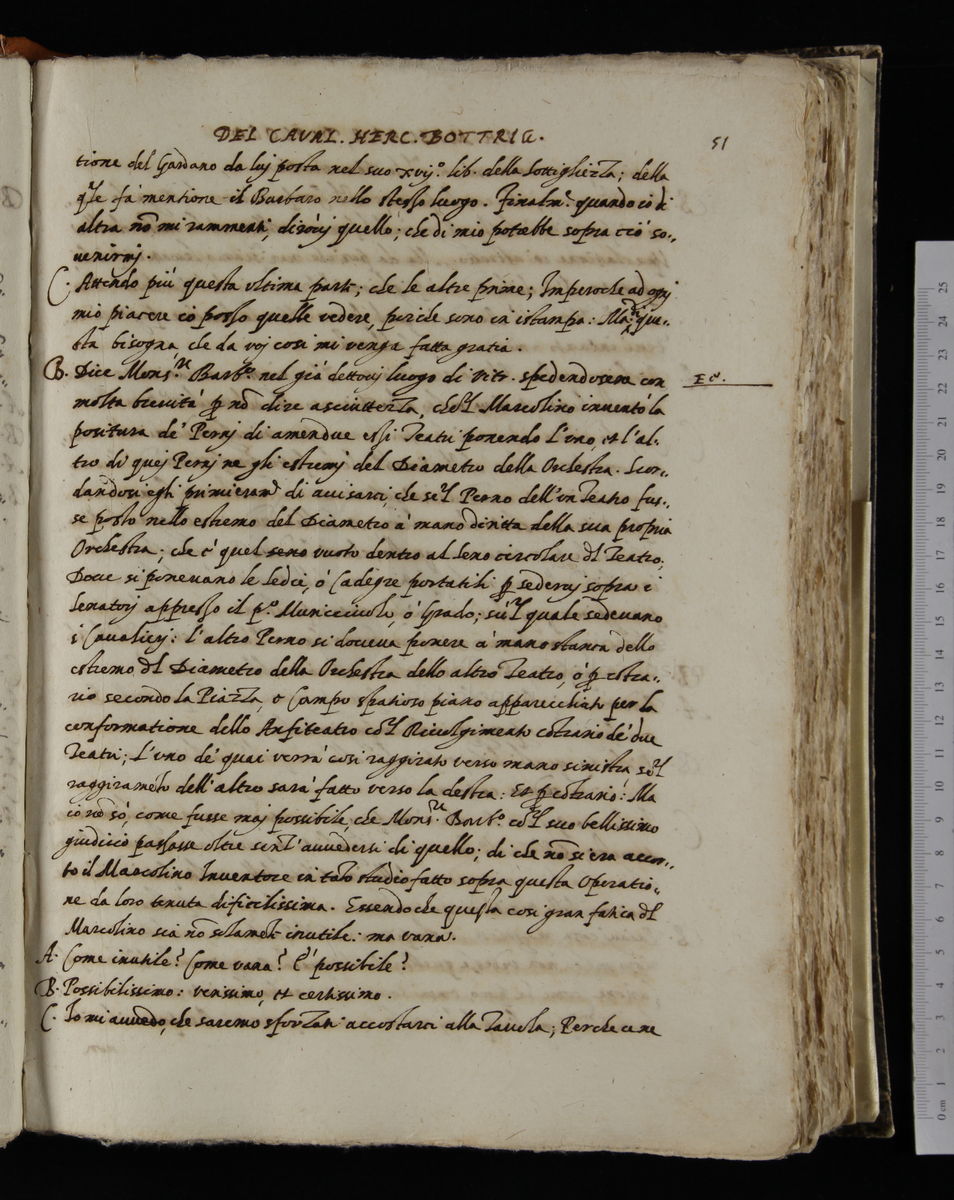 DEL CAVAL. HERC. BOTTRIG.
51
tione del Gardano da luj posta nel suo xvij.º lib. della sottigliezza; della
q̃le fà mentione il Barbaro nello stesso luogo. Finalm.e quando io di
altra nõ mi rammenti, diròuj quello; che di mio potrebbe sopra ciò so-
uenirmj.
C. Attendo più questa vltima parte; che le altre prime; Imperoche ad ognj
mio piacere io posso quelle vedere, perche sono in istampa: Ma di que-
sta bisogna che da voj cosi mi venga fatta gratia.
B. Dice Mons.r Barb.o nel già dettouj luogo di Vitr. spedendosene con
molta breuità p nõ dire asciuttezza, che'l Marcolino inuentò la
positura de' Pernj di amendue essi Teatri ponendo l'uno et l'al-
tro di quej Pernj ne gli estremj del Diametro della Orchestra. Scor-
dandosi egli primieram.te di auisarci, che se'l Perno dell'un Teatro fus-
se posto nello estremo del Diametro à mano diritta della sua propria
Orchestra; che è quel seno vuoto dentro al seno circolare dl Teatro;
Doue si poneuano le sedie, ò Cadegre portatili p sederuj sopra i
Senatorj appresso il p.o Muricciuolo, ò Grado; su'l quale sedeuano
i Caualierj: l'altro Perno si doueua ponere à mano stanca dello
estremo dl Diametro della Orchestra dello altro Teatro, ò p cõtra-
rio secondo la Piazza, o Campo spatioso piano apparecchiato per la
conformatione dello Anfiteatro co'l Riuolgimento cõtrario de' due
Teatri; L'uno de' quai verrà cosi raggirato verso mano sinistra, se'l
raggiramẽto dell'altro sarà fatto verso la destra: Et p cõtrario: Ma
io nõ sò, come fusse maj possibile, che Mons.r Barb.o co'l suo bellissimo
giudicio passasse oltre senz'auuedersi di quello; di che nõ si era accor-
to il Marcolino Inuentore in tãto studio fatto sopra questa Operatio-
ne da loro tenuta dificilissima. Essendo che questa cosi gran fatica dl
Marcolino sia nõ solamẽte inutile: ma vana.
A. Come inutile? Come vana? È possibile?
B. Possibilissimo: verissimo, et certissimo.
C. Io mi auuedo, che saremo sforzati accostarci alla Tauola; Perche ce ne